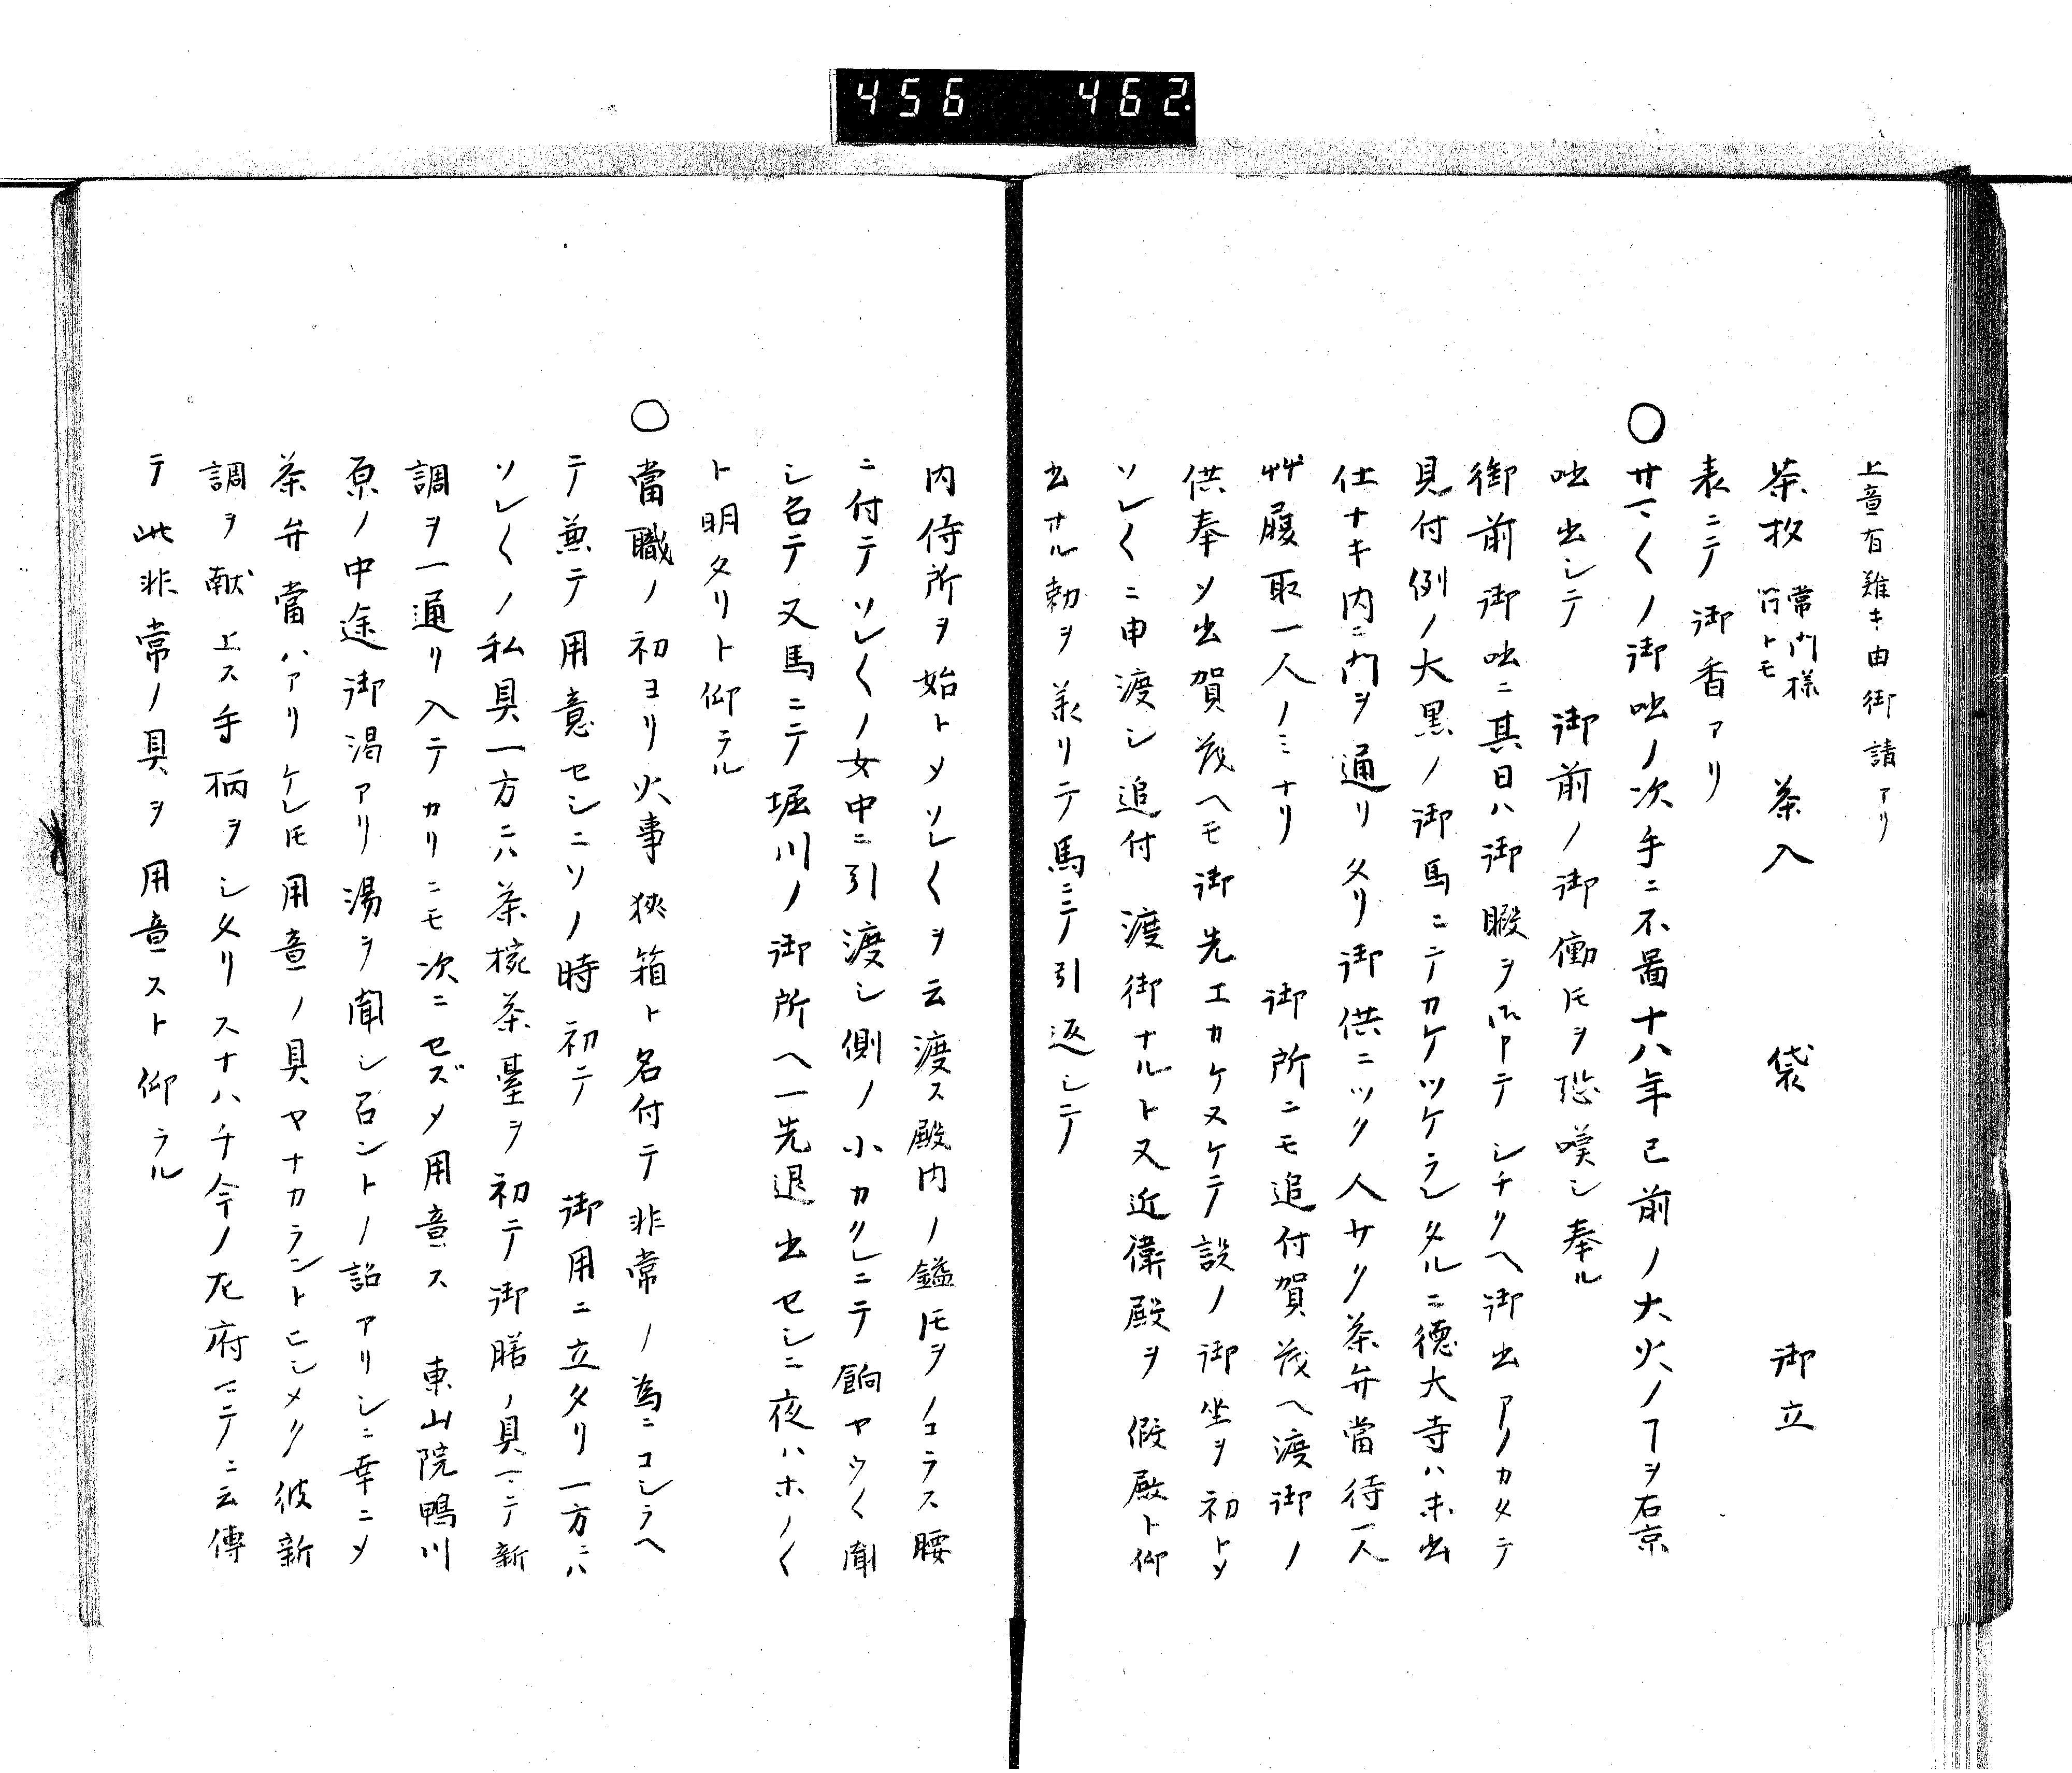 456 462
上意有難キ由御請アリ
茶杓 常門様 茶入 袋 御立
表ニテ御香アリ
〇サマ〱ノ御咄ノ次手ニ不圖十八年已前ノ大火ノヿヲ右京
咄出シテ 御前ノ御働𪜈ヲ感嘆シ奉ル
御前御咄ニ其日ハ御暇ヲ テシチクヘ御出アリカタテ
見付例ノ大黒ノ御馬ニテカケツケラレタルニ徳大寺ハ未出
仕ナキ内ニ門ヲ通リタリ御供ニツク人サク茶弁當待一人
艸履取一人ノミナリ 御所ニモ追付賀茂ヘ渡御ノ
供奉ソ出賀茂ヘモ御先エカケヌケテ設ノ御坐ヲ初トメ
ソレ〱ニ申渡シ追付渡御ナルト又近衛殿ヲ假殿ト仰
出サル勅ヲ承リテ馬ニテ引返シテ
内侍所ヲ始トメソレ〱ヲ云渡ス殿内ノ鎰𪜈ヲノコラス腰
ニ付テソレ〱ノ女中ニ引渡シ側ノ小カクレニテ餉ヤウ〱聞
シ召テ又馬ニテ堀川ノ御所ヘ一先退出セシニ夜ハホノ〱
ト明タリト仰ラル
〇當職ノ初ヨリ火事狹箱ト名付テ非常ノ為ニコシラヘ
テ兼テ用意セシニソノ時初テ 御用ニ立タリ一方ニハ
ソレ〱ノ私具一方ニハ茶椀茶臺ヲ初テ御膳ノ具マテ新
調ヲ一通リ入テカリニモ次ニセズメ用意ス 東山院鴨川
原ノ中途御渇アリ湯ヲ聞シ召ントノ詔アリシニ幸ニメ
茶弁當ハアリケレ𪜈用意ノ具ヤナカラントヒシメク彼新
調ヲ献上ス手柄ヲシタリスナハチ今ノ左府マテニ云傳
テ此非常ノ具ヲ用意スト仰ラル